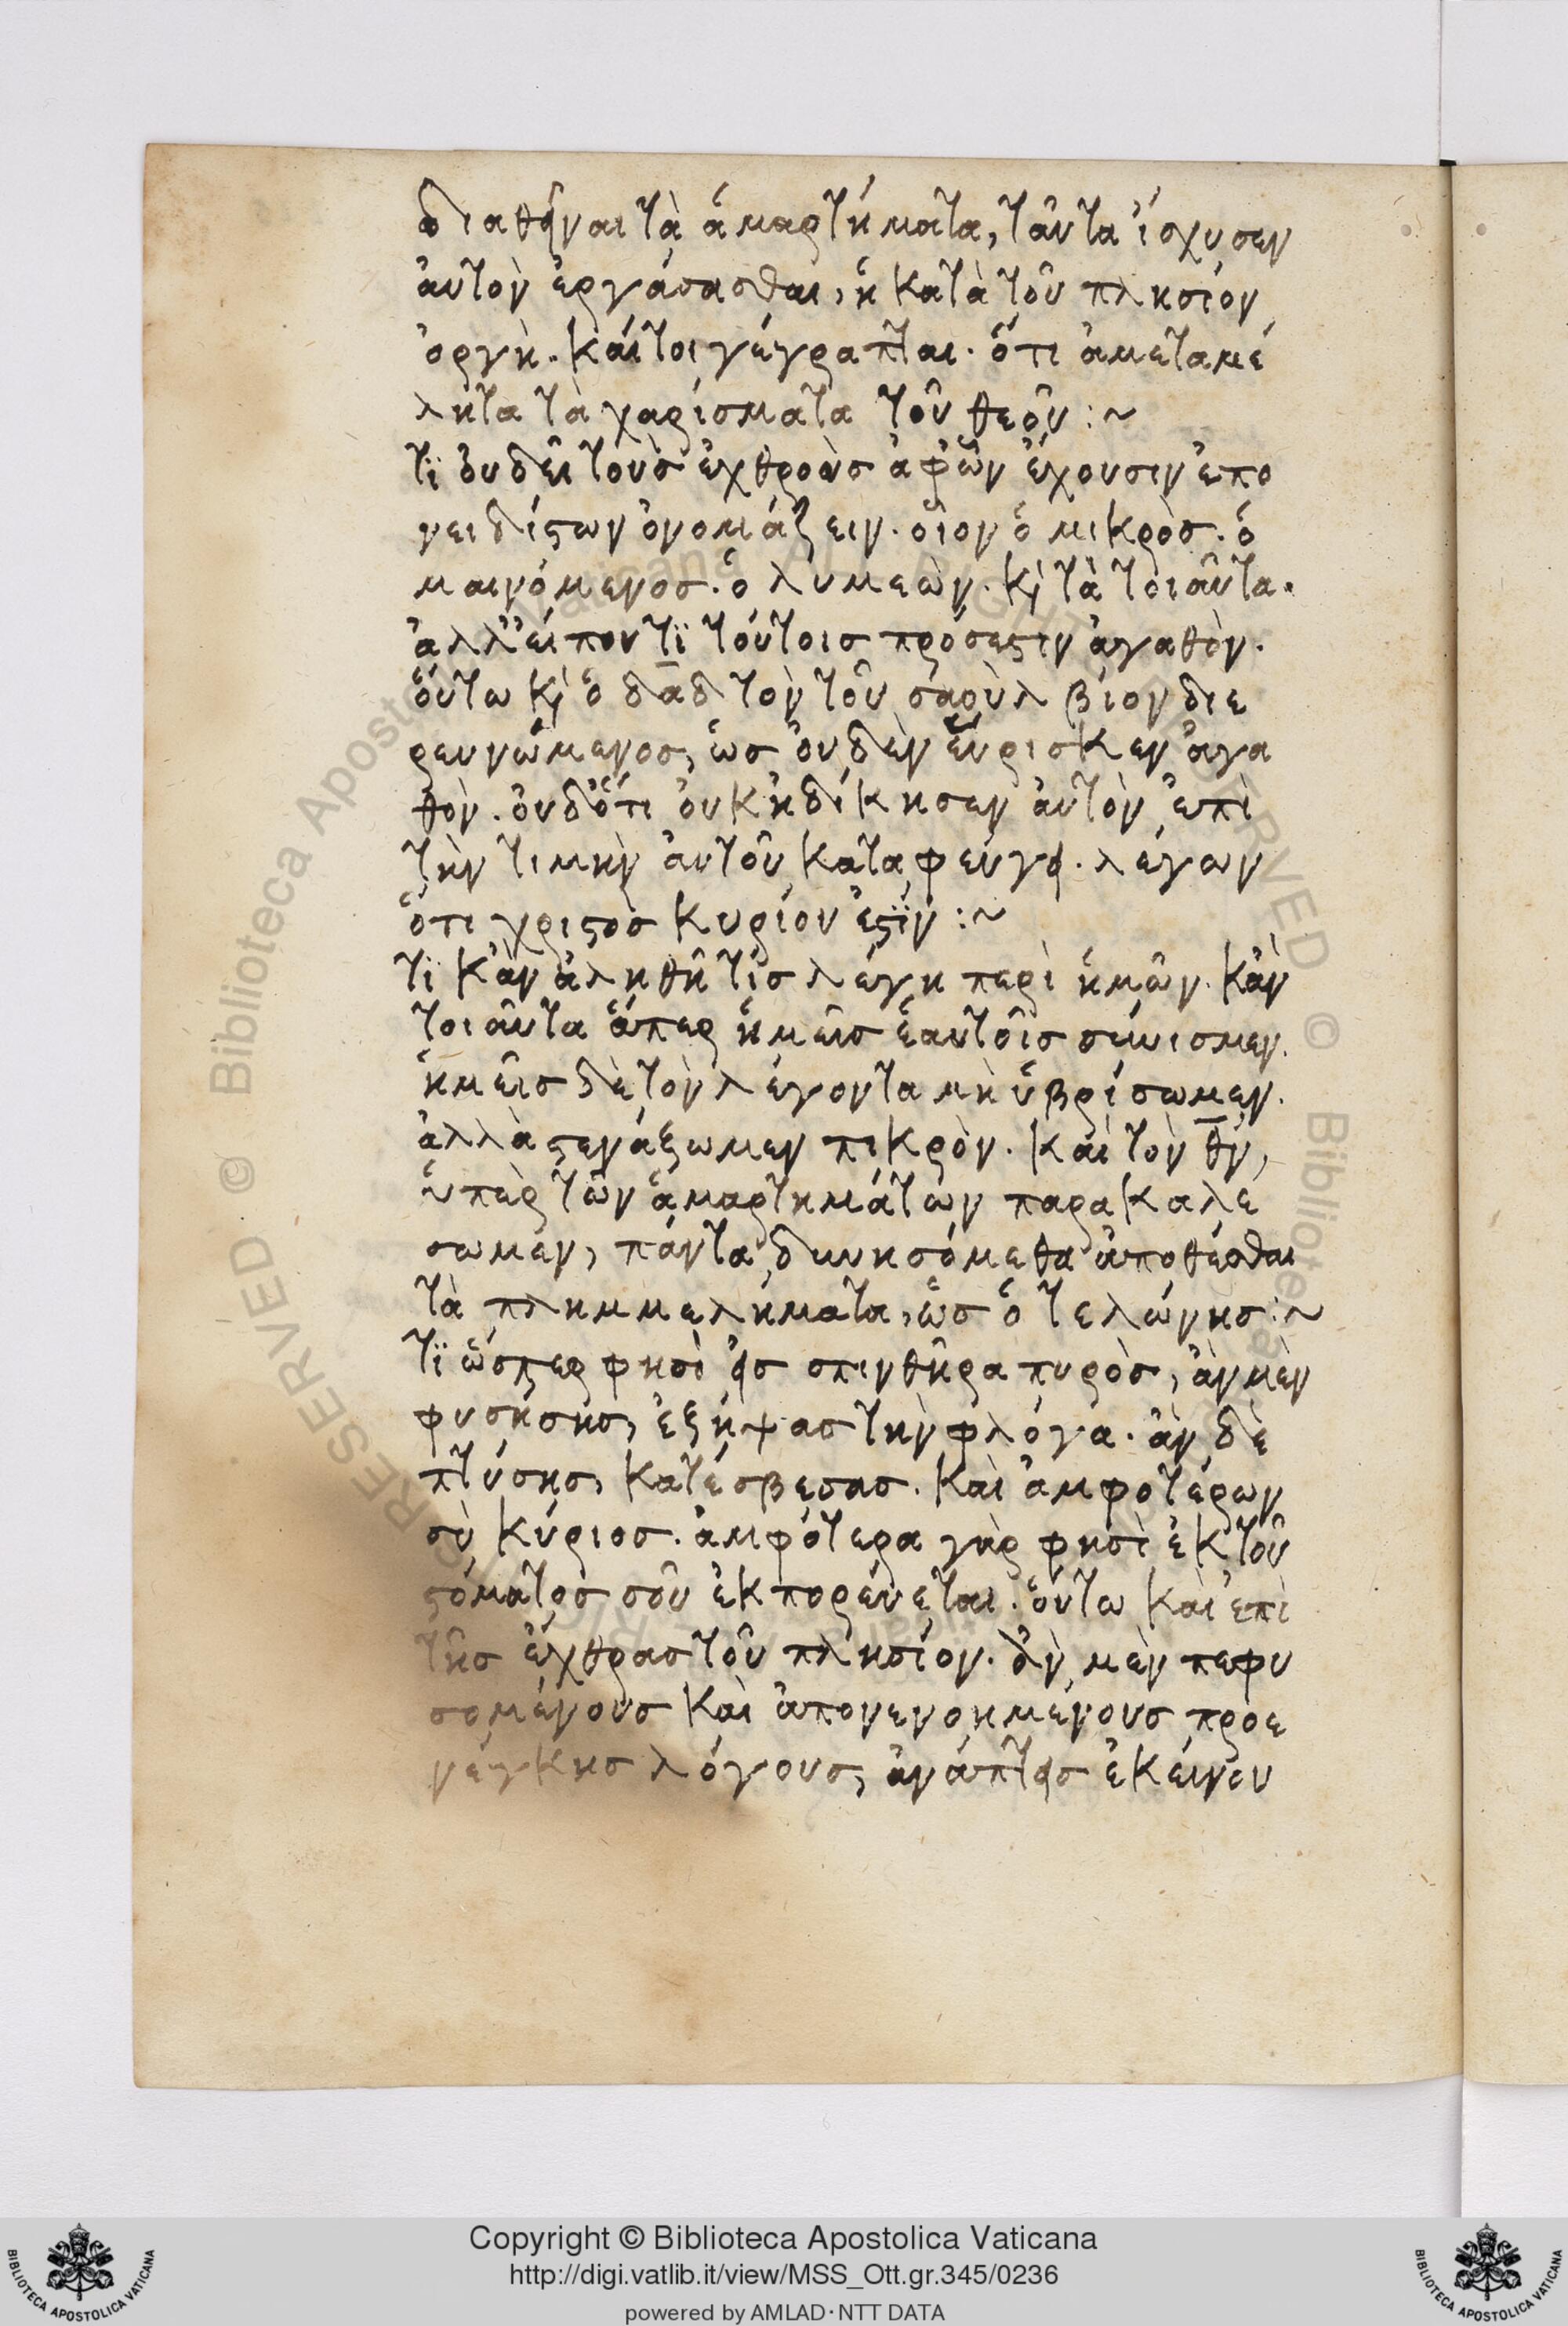 διαθῆναι τὰ ἁμαρτήματα, ταῦτα ἴσχυσεν
αὐτὸν ἐργάσασθαι, ἡ κατὰ τοῦ πλησίον
ὀργή. καίτοι γέγραπται· ὅτι ἀμεταμέ
λητα τὰ χαρίσματα τοῦ θεοῦ :~
Τϊ οὐ δεῖ τοὺς ἐχθροὺς ἀφ' ὧν ἔχουσιν ἐπο
νειδίστων ὀνομάζειν. οἷον ὁ μικρὸς. ὁ
μαινόμενος. ὁ λυμεὼν. κ τὰ τοιαῦτα.
ἀλλ' εἴπου τϊ τούτοις πρόσεστιν ἀγαθὸν.
οὕτω κ ὁ δαδ τὸν τοῦ σαοὺλ βίον διε
ρευνώμενος, ὡς οὐδὲν εὕρισκεν ἀγα
θὸν. οὐδ' ὅτι οὐκ ἠδίκησεν αὐτὸν, ἐπὶ
τὴν τιμὴν αὐτοῦ καταφεύγει. λέγων
ὅτι χριστὸς κυρίου ἐστϊν :~
Τϊ κἂν ἀληθῆ τὶς λέγη περὶ ἡμῶν. κἂν
τοιαῦτα ἅπερ ἡμεῖς ἑαυτοῖς σύνισμεν.
ἡμεῖς δὲ τὸν λέγοντα μὴ ὑβρίσωμεν.
ἀλλὰ στενάξωμεν πικρὸν. καὶ τὸν θν,
ὑπὲρ τῶν ἁμαρτημάτων παρακαλέ
σωμεν, πάντα δυνησόμεθα ἀποθέσθαι
τὰ πλημμελήματα, ὡς ὁ τελώνης :~
Τϊ ὥσπερ φησὶ εἰς σπινθῆρα πυρὸς, ἂν μὲν
φυσήσης, ἐξήψας τὴν φλόγα. ἂν δὲ
πτύσης, κατέσβεσας. καὶ ἀμφοτέρων
σὺ κύριος. ἀμφότερα γὰρ φησὶ ἐκ τοῦ
στόματος σοῦ ἐκπορεύεται. οὕτω καὶ ἐπὶ
τῆς ἔχθρας τοῦ πλησίον. ἂν μὲν πεφυ
σομένους καὶ ἀπονενοημένους προε
νέγκης λόγους, ἀνάπτεις ἐκείνου
Copyright © Biblioteca Apostolica Vaticana
http://digi.vatlib.it/view/MSS_Ott.gr.345/0236
powered by AMLAD·NTT DATA